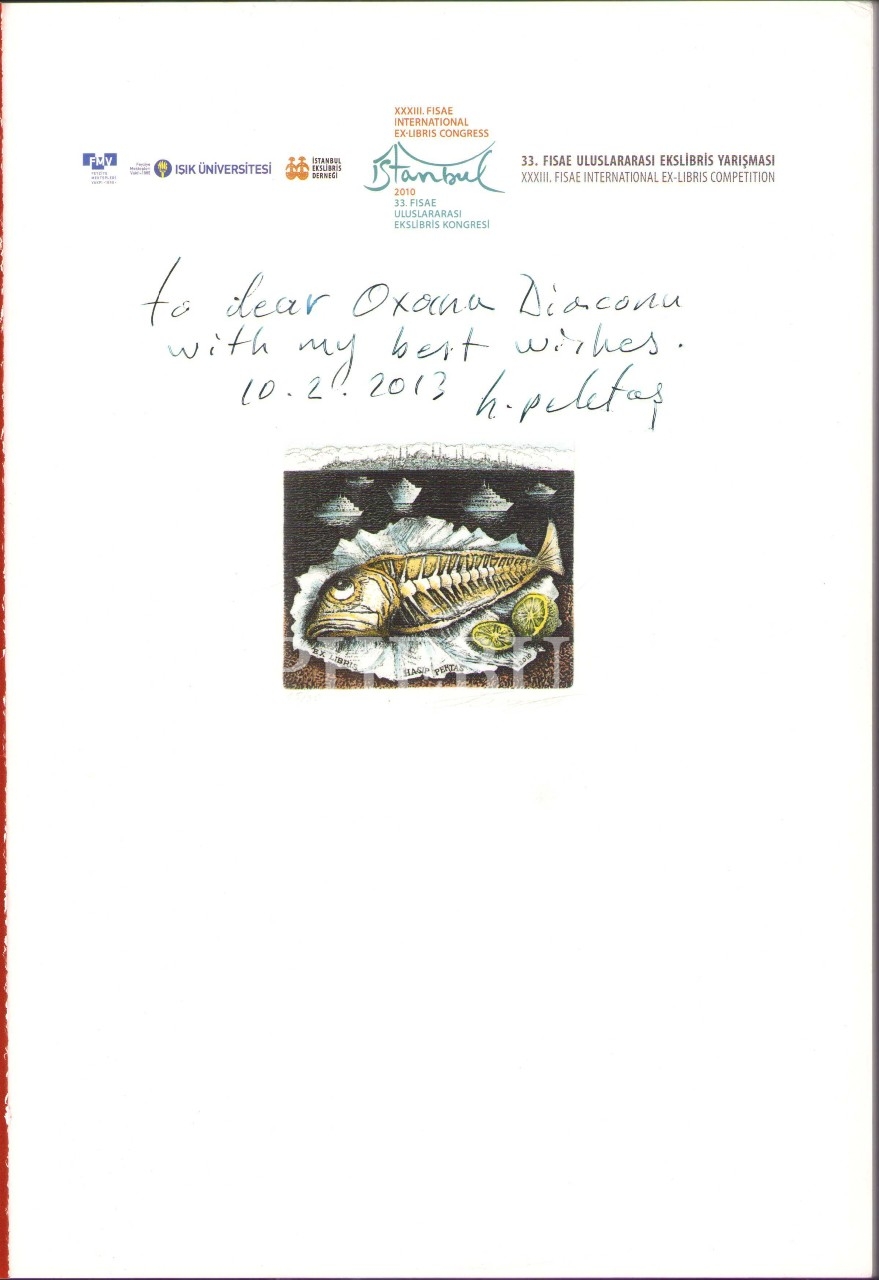 XXXIII. FISAE
INTERNATIONAL
EX-LIBRIS CONGRESS
istanbul
2010
33. FISAE
ULUSLARARASI
EKSLİBRİS KONGRESİ
FMV
IŞIK ÜNİVERSİTESİ
İSTANBUL
EKSLİBRİS
DERNEĞİ
33. FISAE ULUSLARARASI EKSLİBRİS YARIŞMASI
XXXIII. FISAE INTERNATIONAL EX-LIBRIS COMPETITION
to dear Oxana Diaconu
with my best wishes.
10.2.2013 h. pektaş
EX LIBRIS HASİP PEKTAŞ 2010